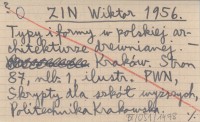 O ZIN Wiktor 1956.
Typy i formy w polskiej ar-
chitekturze drewnianej. -
Kraków. Stron
87, nlb. 1, ilustr. PWN,
Skrypty dla szkół wyższych,
Politechnika Krakowska.